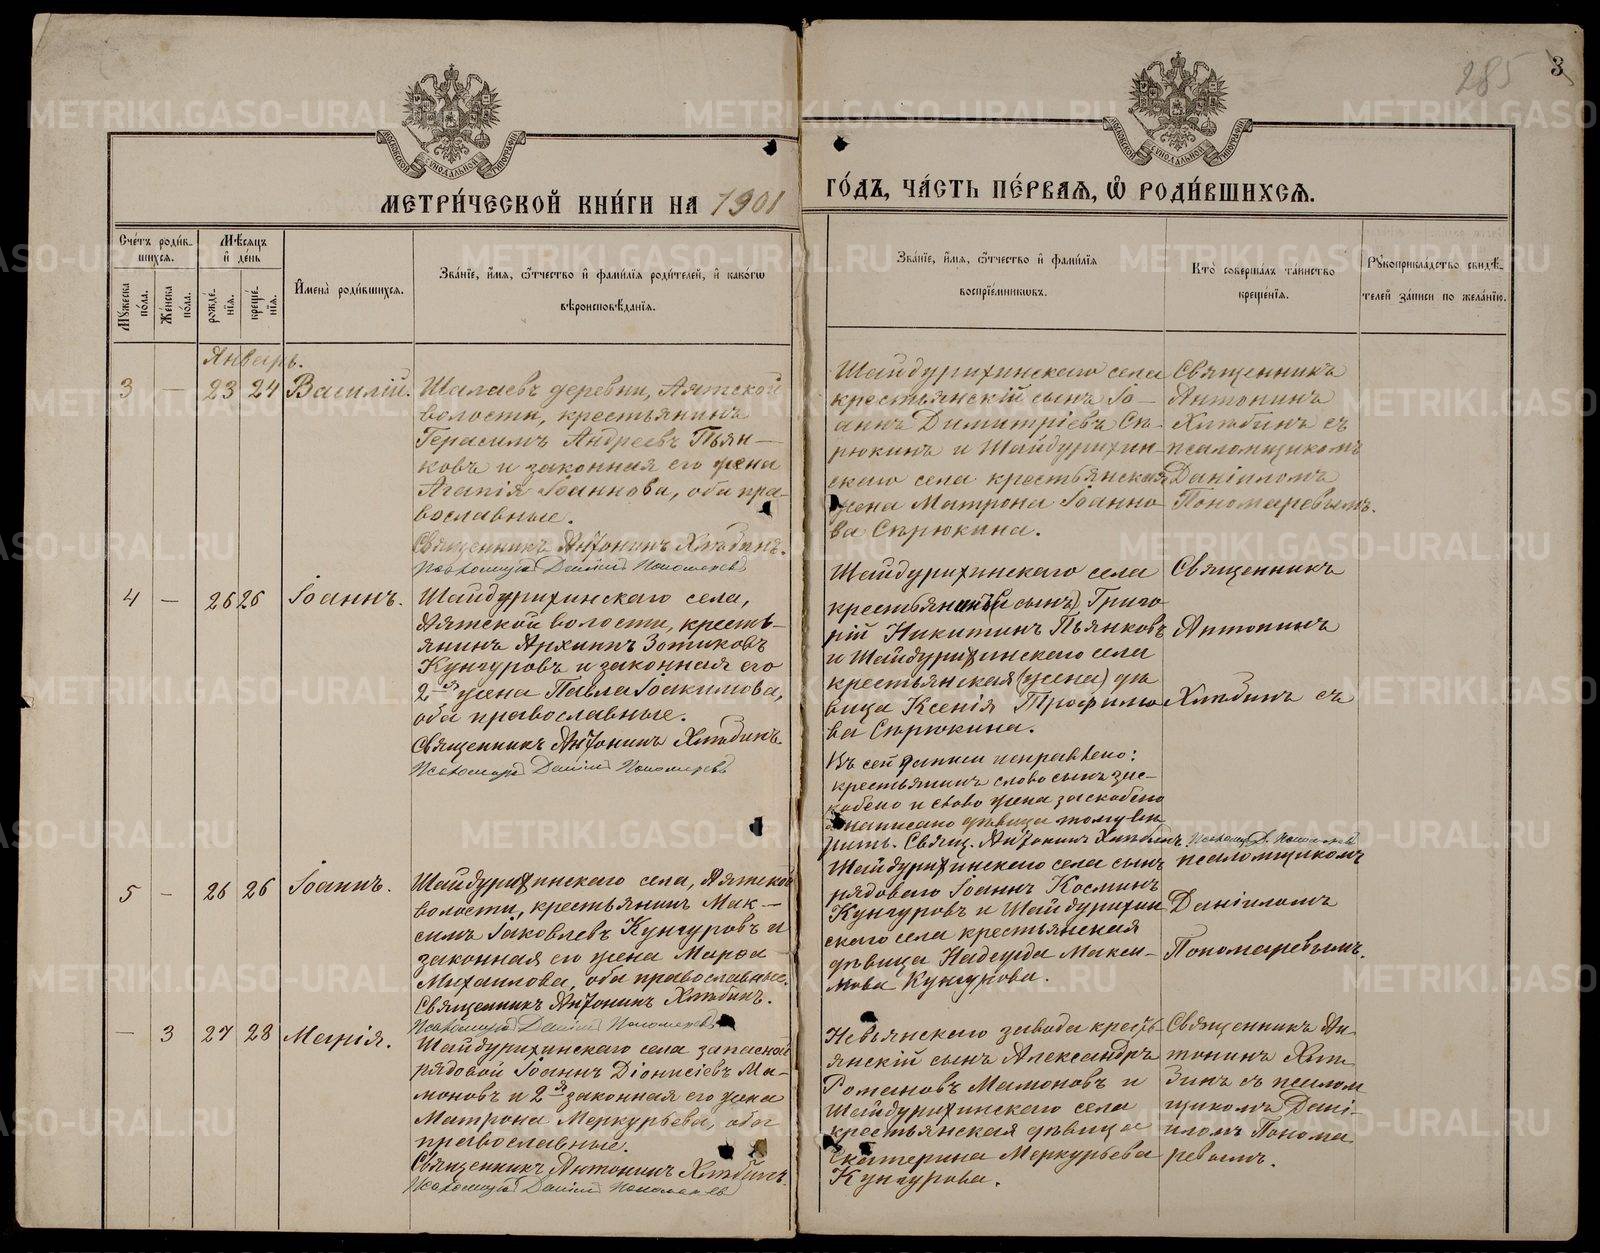 285 3
МЕТРИ́ЧЕСКОЙ КНИ́ГИ НА 1901
ГО́ДЪ, ЧА́СТЬ ПЕ́РВАѦ, Ѡ҆ РОДИ́ВШИХСѦ.
Сче́тъ роди́в-
шихсѧ.
Мꙋ́жеска по́ла.
Же́нска по́ла.
Мѣ́сѧцъ
и҆ де́нь
рожде́-
нїѧ.
креще́-
нїѧ.
И҆мена̀ роди́вшихсѧ.
Зва́нїе, и҆́мѧ, ѻ҆́тчество и҆ фами́лїѧ роди́телей, и҆ како́гѡ
вѣроисповѣ́данїѧ.
Зва́нїе, и҆́мѧ, ѻ҆́тчество и҆ фами́лїѧ
воспрїе́мникѡвъ.
Кто̀ соверша́лъ та́инство
креще́нїѧ.
Рꙋкоприкла́дство свидѣ́-
телей за́писи по жела́нїю.
Январь.
3 — 23 24 Василій.
Шалаевъ деревни, Аятской
волости, крестьянинъ
Герасимъ Андреевъ Пьян-
ковъ и законная его жена
Агапія Іоаннова, оба пра-
вославные.
Священникъ Антонинъ Хлѣбинъ.
Псаломщикъ Даніилъ Пономаревъ
Шайдурихинскаго села
крестьянскій сынъ Іо-
аннъ Димитріевъ Сѣ-
рюкинъ и Шайдурихин-
скаго села крестьянская
жена Матрона Іоанно-
ва Сѣрюкина.
Священникъ
Антонинъ
Хлѣбинъ съ
псаломщикомъ
Даніиломъ
Пономаревымъ.
4 — 26 26 Іоаннъ.
Шайдурихинскаго села,
Аятской волости, кресть-
янинъ Архипъ Зотиковъ
Кунгуровъ и законная его
2-я жена Павла Іоакимова,
оба православные.
Священникъ Антонинъ Хлѣбинъ.
Псаломщикъ Даніилъ Пономаревъ
Шайдурихинскаго села
крестьянинъ (сынъ) Григо-
рій Никитинъ Пьянковъ
и Шайдурихинскаго села
крестьянская (жена) дѣ-
вица Ксенія Трофимо-
ва Сѣрюкина.
Въ сей записи исправлено:
крестьянинъ слово сынъ зас-
кобено и слово жена заскобено
написано дѣвица тому вѣ-
рить. Свящ. Антонинъ Хлѣбинъ. Псаломщ. Д. Пономаревъ
Священникъ
Антонинъ
Хлѣбинъ съ
псаломщикомъ
Даніиломъ
Пономаревымъ.
5 — 26 26 Іоаннъ.
Шайдурихинскаго села, Аятской
волости, крестьянинъ Мак-
симъ Іаковлевъ Кунгуровъ и
законная его жена Марѳа
Михаилова, оба православные.
Священникъ Антонинъ Хлѣбинъ.
Псаломщикъ Даніилъ Пономаревъ
Шайдурихинскаго села сынъ
рядоваго Іоаннъ Косминъ
Кунгуровъ и Шайдурихин
скаго села крестьянская
дѣвица Надежда Макси-
мова Кунгурова.
— 3 27 28 Марія.
Шайдурихинскаго села запасной
рядовой Іоаннъ Діонисіевъ Ма-
моновъ и 2-я законная его жена
Матрона Меркурьева, оба
православные.
Священникъ Антонинъ Хлѣбинъ.
Псаломщикъ Даніилъ Пономаревъ
Невьянскаго завода кресть-
янскій сынъ Александръ
Романовъ Мамоновъ и
Шайдурихинскаго села
крестьянская дѣвица
Екатерина Меркурьева
Кунгурова.
Священникъ Ан-
тонинъ Хлѣ-
бинъ съ псалом
щикомъ Дані-
иломъ Понома
ревымъ.